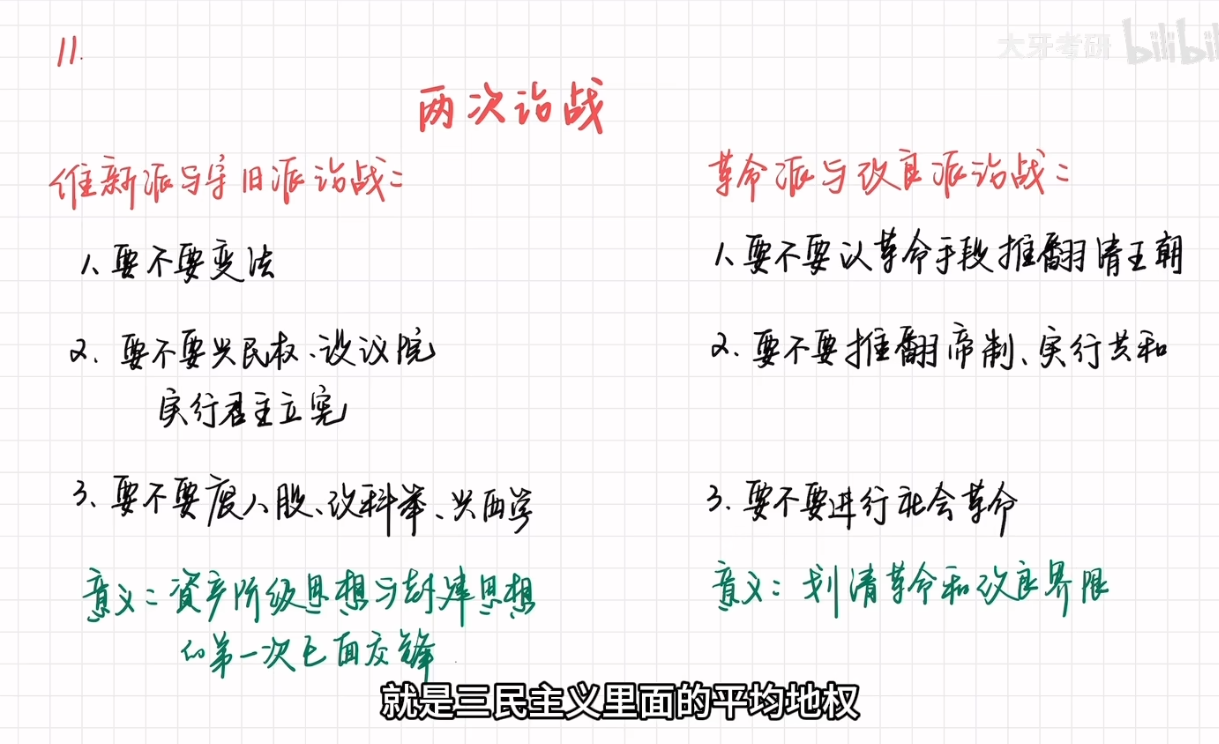 11.
大牙考研 bilibili
两次论战
维新派与守旧派论战:
1、要不要变法
2、要不要兴民权、设议院
实行君主立宪
3、要不要废八股、改科举、兴西学
意义:资产阶级思想与封建思想
的第一次正面交锋
革命派与改良派论战:
1、要不要以革命手段推翻清王朝
2、要不要推翻帝制、实行共和
3、要不要进行社会革命
意义:划清革命和改良界限
就是三民主义里面的平均地权